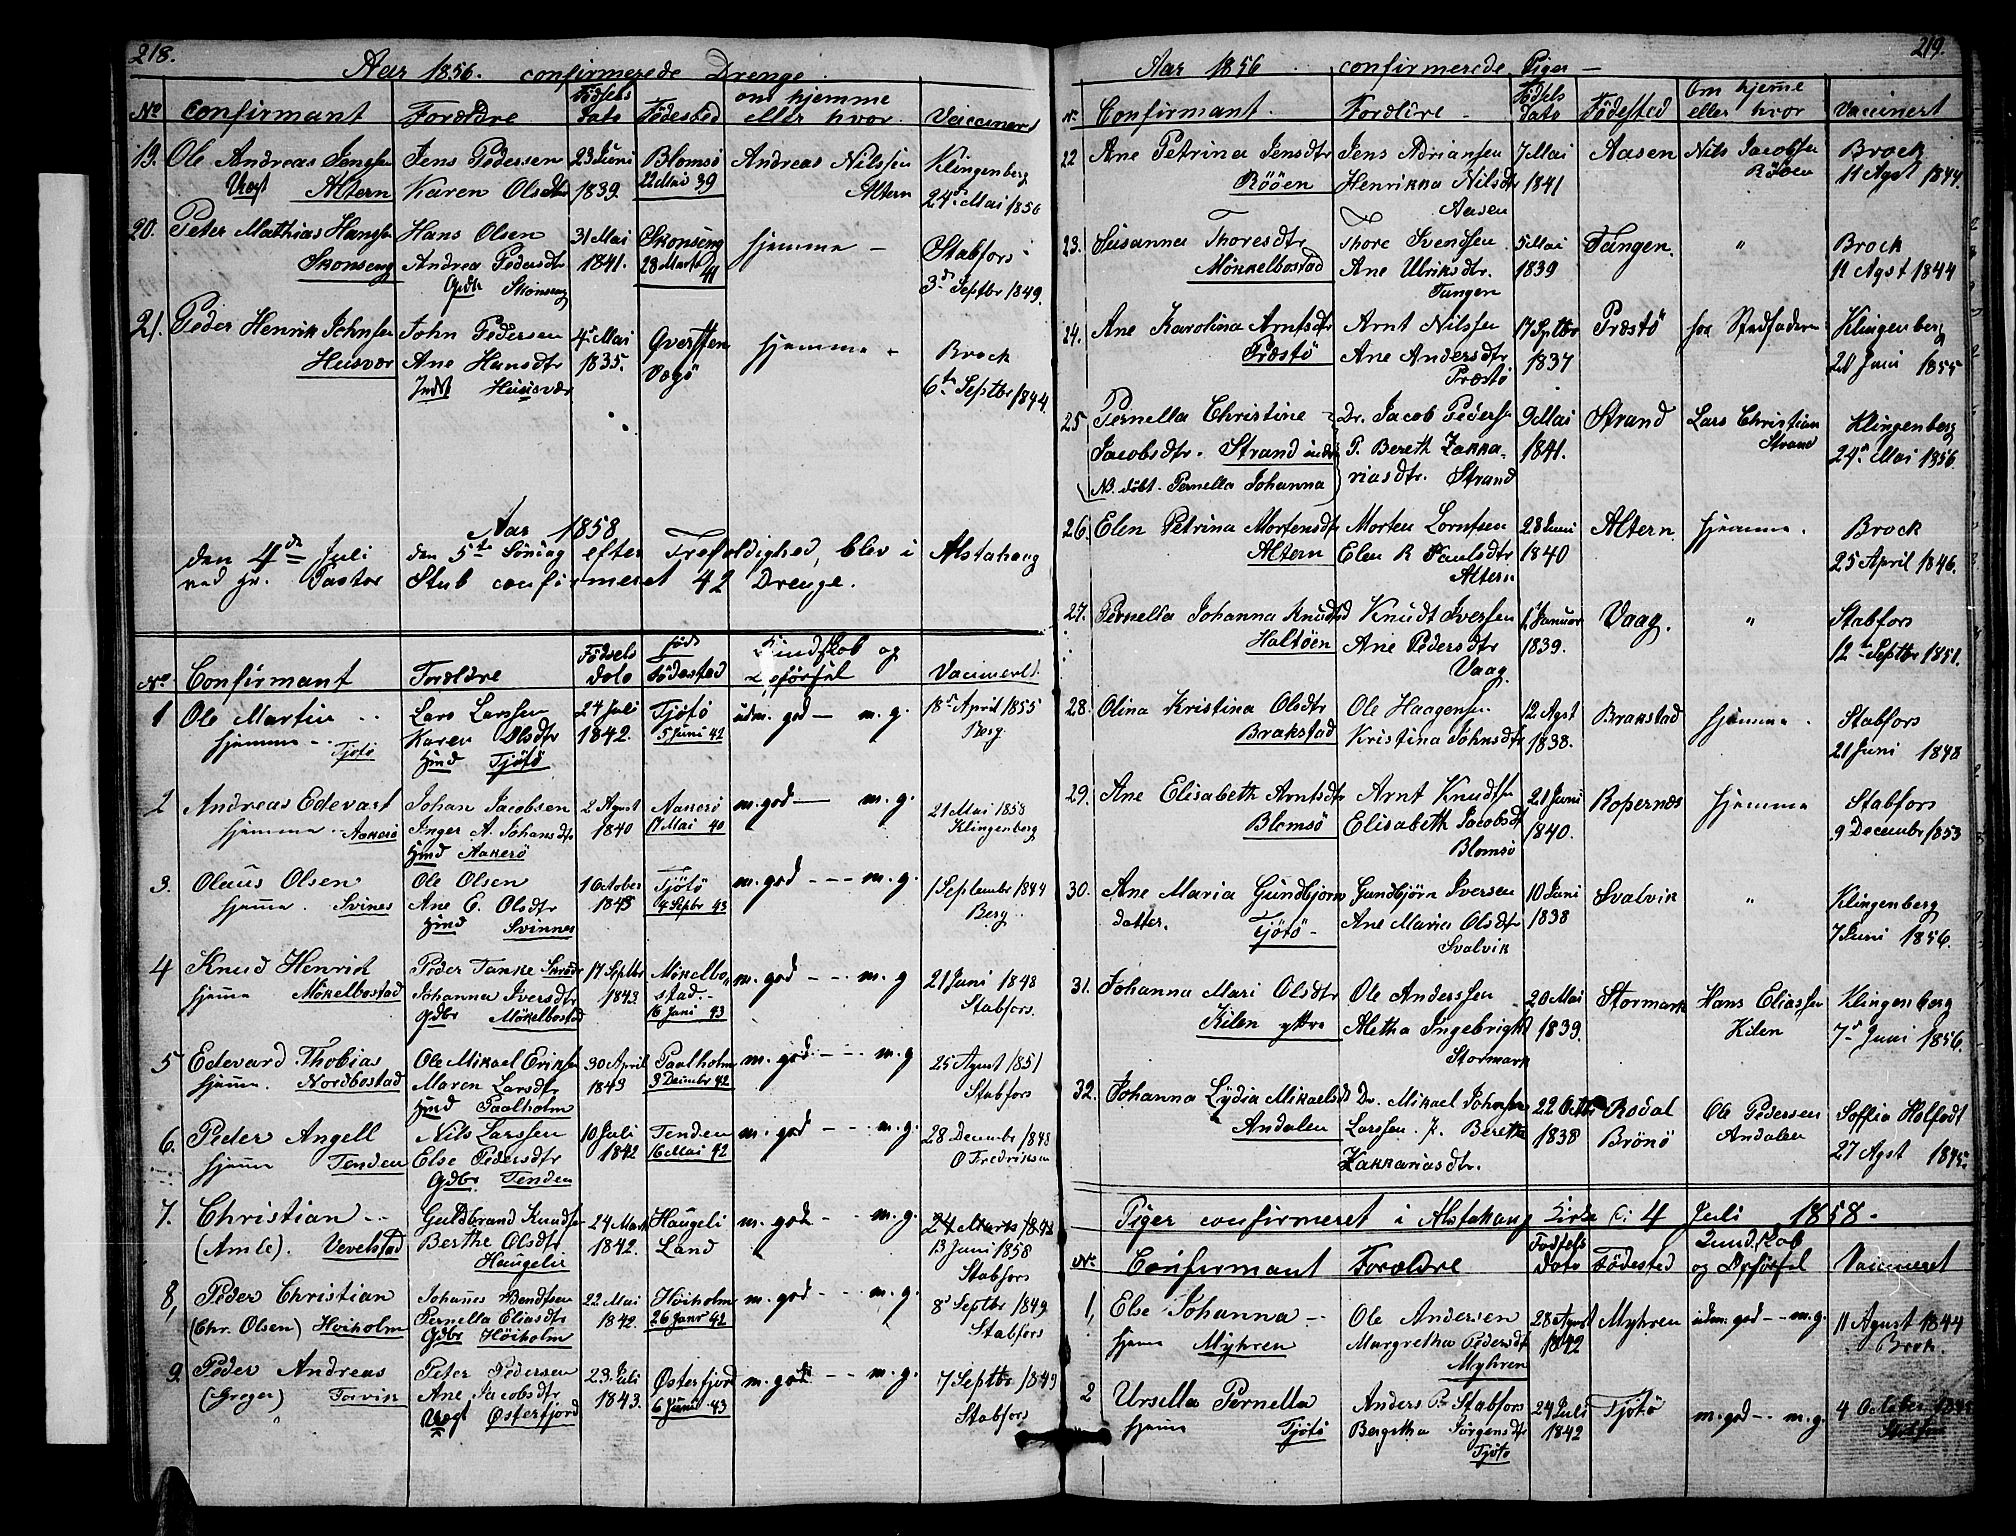 218.
Aar 1856. confirmerede Drenge
No confirmant Forældre Födsels Dato Födested om hjemme eller hvor Vaccineret
19. Ole Andreas Jensen Jens Pedersen 23 Juni Blomsö Andreas Nilssen Klingenberg
Vegt Altern Karen Olsdtr 1839. 22 Mai 39 Altern 24de Mai 1856
20. Peter Mathias Hanssen Hans Olsen 31 Mai Skonseng hjemme - Stabfors
Skonseng Andrea Pedersdtr 1841. 28 Marts 41 3d Septbr 1849.
Gdbr Skonseng
21. Peder Henrik Johnsen John Pedersen 4de Mai hjemme - Brock
Husvær Ane Hansdtr 1835. Vegö 6te Septbr 1844.
Indst Husvær
Aar 1858
den 4de Juli den 5te Söndag efter Trefoldighed, blev i Alstahaug
ved Hr. Pastor Stub confirmeret 42 Drenge.
No Confirmant Forældre Födsels Dato Födested Kundskab og Opförsel Vaccineret
1 Ole Martin Lars Larssen 24 Juli Tjötö udm. god — m. g. 18 April 1855
hjemme - Tjötö Karen Olsdtr 1842. 5 Juni 42 Berg.
Hmd Tjötö
2 Andreas Edevart Johan Jacobsen 2 Agust Aakerö m. god — m. g. 21 Mai 1858
hjemme - Aakerö Inger A. Johansdtr 1840 17 Mai 40 Klingenberg
Hmd Aakerö
3. Olaus Olsen Ole Olsen 1 October Tjötö m. god - - - m. g. 1 September 1844
hjemme. Svines Ane E. Olsdtr 1843 4 Septbr 43 Berg.
Hmd Svinnes
4 Knud Henrik Peder Tanke 17 Septbr Mökelbostad m. god - - - m. g 21 Juni 1848
hjemme Mökelbostad Johanna Iversdtr 1843 16 Juni 43 Stabfors.
Gdbr Mökelbostad
5 Edevard Thobias Ole Mikael Eriksen 30 April Paalholm m. god - - - m. g. 25 Agust 1851
hjemme. Nordbostad Maren Larsdtr 1843 3 Decembr 42 Stabfors
Hmd Paalholm
6. Peder Angell Nils Larssen 10 Juli Tenden m. god - - m. g. 28 Decembr 1848
hjemme Tenden Else Pedersdtr 1842 16 Mai 42 O Fredriksen
Gdbr Tenden
7. Christian - - Guldbrand Knudsen 24 Marts Haugeli m. god - - m. g. 24 Marts 1842
(Amle). Vevelstad Berthe Olsdtr 1842. Land 13 Juni 1858
Haugelie Stabfors
8, Peder Christian Johannes Bendtsen 22 Mai Höiholm m. god - - - m. g. 8 Septbr 1849
(Chr. Olsen) Höiholm Pernella Eliasdtr 1842. 26 Janr 42 Stabfors
Gdbr Höiholm
9. Peder Andreas Peter Pedersen 23 Juli Østerfjord m. god - - m. g. 7 Septbr 1849
(Greger) Forvik Ane Jacobsdtr 1843. 6 Juni 43 Stabfors
Vegt Østerfjord
219.
Aar 1856 confirmerede Piger —
No Confirmant Forældre - Födsels Dato Födested Om hjemme eller hvor Vaccinert
22 Ane Petrina Jensdtr Jens Adriansen 7 Mai Aasen Nils Jacobsen Brock
Rööen Henrikka Nilsdtr 1841 Röoen 11 Agst 1844.
Aasen
23. Susanna Thoresdtr Thore Svendsen 5 Mai Tangen. " Brock
Mökkelbostad Ane Ulriksdtr. 1839 11 Agst 1844
Tangen
24. Ane Karolina Arntsdtr Arnt Nilssen 17 Sptbr Præstö hos Stedfaderen Klingenberg
Præstö Ane Andersdtr 1837 20 Juni 1855
Præstö
25 Pernella Christine Dr. Jacob Peders 9 Mai Strand Lars Christian Klingenberg
Jacobsdtr. Strand P. Bereth Zakka- 1841. Strand 24de Mai 1856.
(NB. döbt. Pernella Johanna) riasdtr. Strand
26. Elen Petrina Mortensdtr Morten Lorntsen 28 Juni Altern hjemme. Brock
Altern Elen R Paulsdtr 1840 25 April 1846.
Altern
27. Pernella Johanna Knudtsd Knudt Iversen 12 Januar Vaag. " Stabfors
Haltöen Ane Pedersdtr 1839. 12te Septbr 1851.
Vaag
28. Olina Kristina Olsdtr Ole Haagensen 12 Agst Brakstad hjemme. Stabfors
Brakstad Kristina Johnsdtr 1838. 21 Juni 1848
29. Ane Elisabeth Arntsdtr Arnt Knudsen 21 Juni Ropernæs hjemme Stabfors
Blomsö Elisabeth Jacobsdt 1840. 9 Decembr 1853
Blomsö
30. Ane Maria Gundbjorn Gundbjörn Iversen 10 Juni Svalvik " Klingenberg
datter. Tjötö - Ane Maria Olsdtr 1838 7 Juni 1856.
Svalvik
31. Johanna Mari Olsdtr Ole Anderssen 20 Mai Stormark Hans Eliassen Klingenberg
Kilen yttre Aletha Ingebrigt 1839. Kilen 7de Juni 1856.
Stormark
32. Johanna Lydia Mikaelsdt Dr. Mikael Johnsen 22 Octbr Rodal Ole Pedersen Soffia Holfodt
Andalen Larssen. P. Berethe 1838 Brönö Andalen 27 Agst 1845.
Zakkariasdtr.
Piger confirmeret i Alstahaug Kirke d: 4 Juli 1858.
No Confirmant Forældre Födsels Dato Födested Kundskab og Opförsel Vaccineret
1, Else Johanna - Ole Andersen 28 Agust Myhren udm. god - - m. g. 11 Agust 1844
hjemme Myhren Margretha Pedersdt 1842 Brock.
Myhren
2 Ursella Pernella Anders P. Stabfors 24 Juli Tjötö m. god - - m. g. 4 October
hjemme Tjötö Bergetha Jörgensdtr 1842 Stabfors
Tjötö